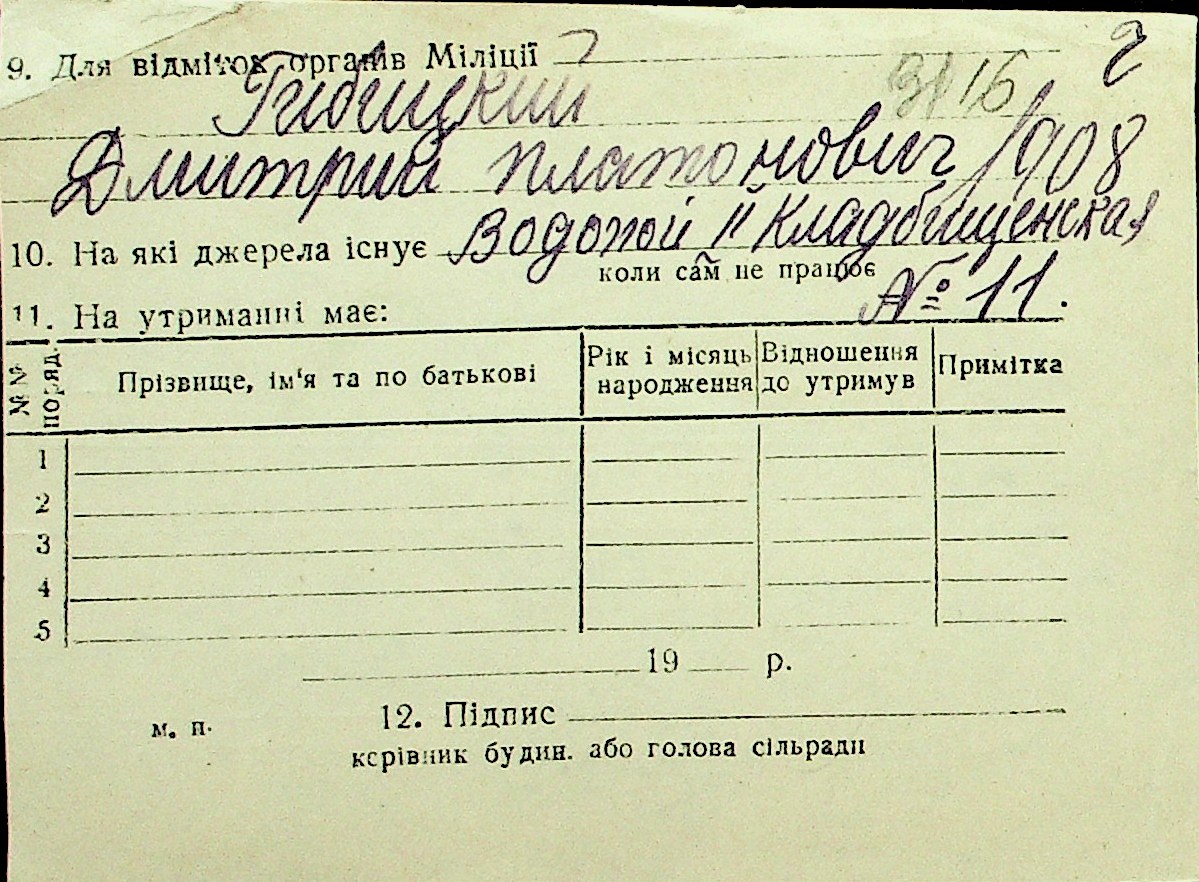 9. Для відміток органів Міліції
16
Гибицкий
Дмитрий Платонович 1908
10. На які джерела існує Водопой II Кладбищенская
коли сам не працює № 11.
11. На утриманні має:
№№ поряд. Прізвище, ім‘я та по батькові Рік і місяць народження Відношення до утримув Примітка
1
2
3
4
5
19 р.
м. п. 12. Підпис
керівник будин. або голова сільради